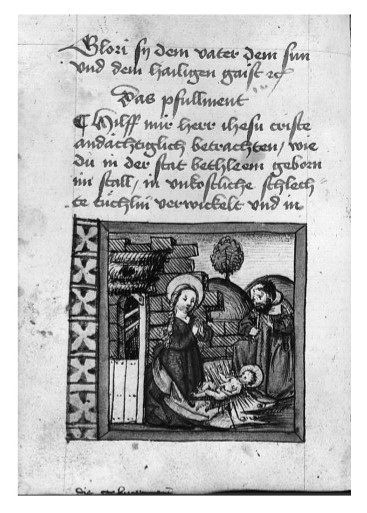 Glori sÿ dem vater dem sun
vnd dem hailigen gaist ꝛc
Das pfulment
¶ Hilff mir herr ihesu criste
andächtiglich betrachten / wie
du in der stat bethleem geborn
im stall / in vnkostliche schlech
te tüchlin verwickelt vnd in
die